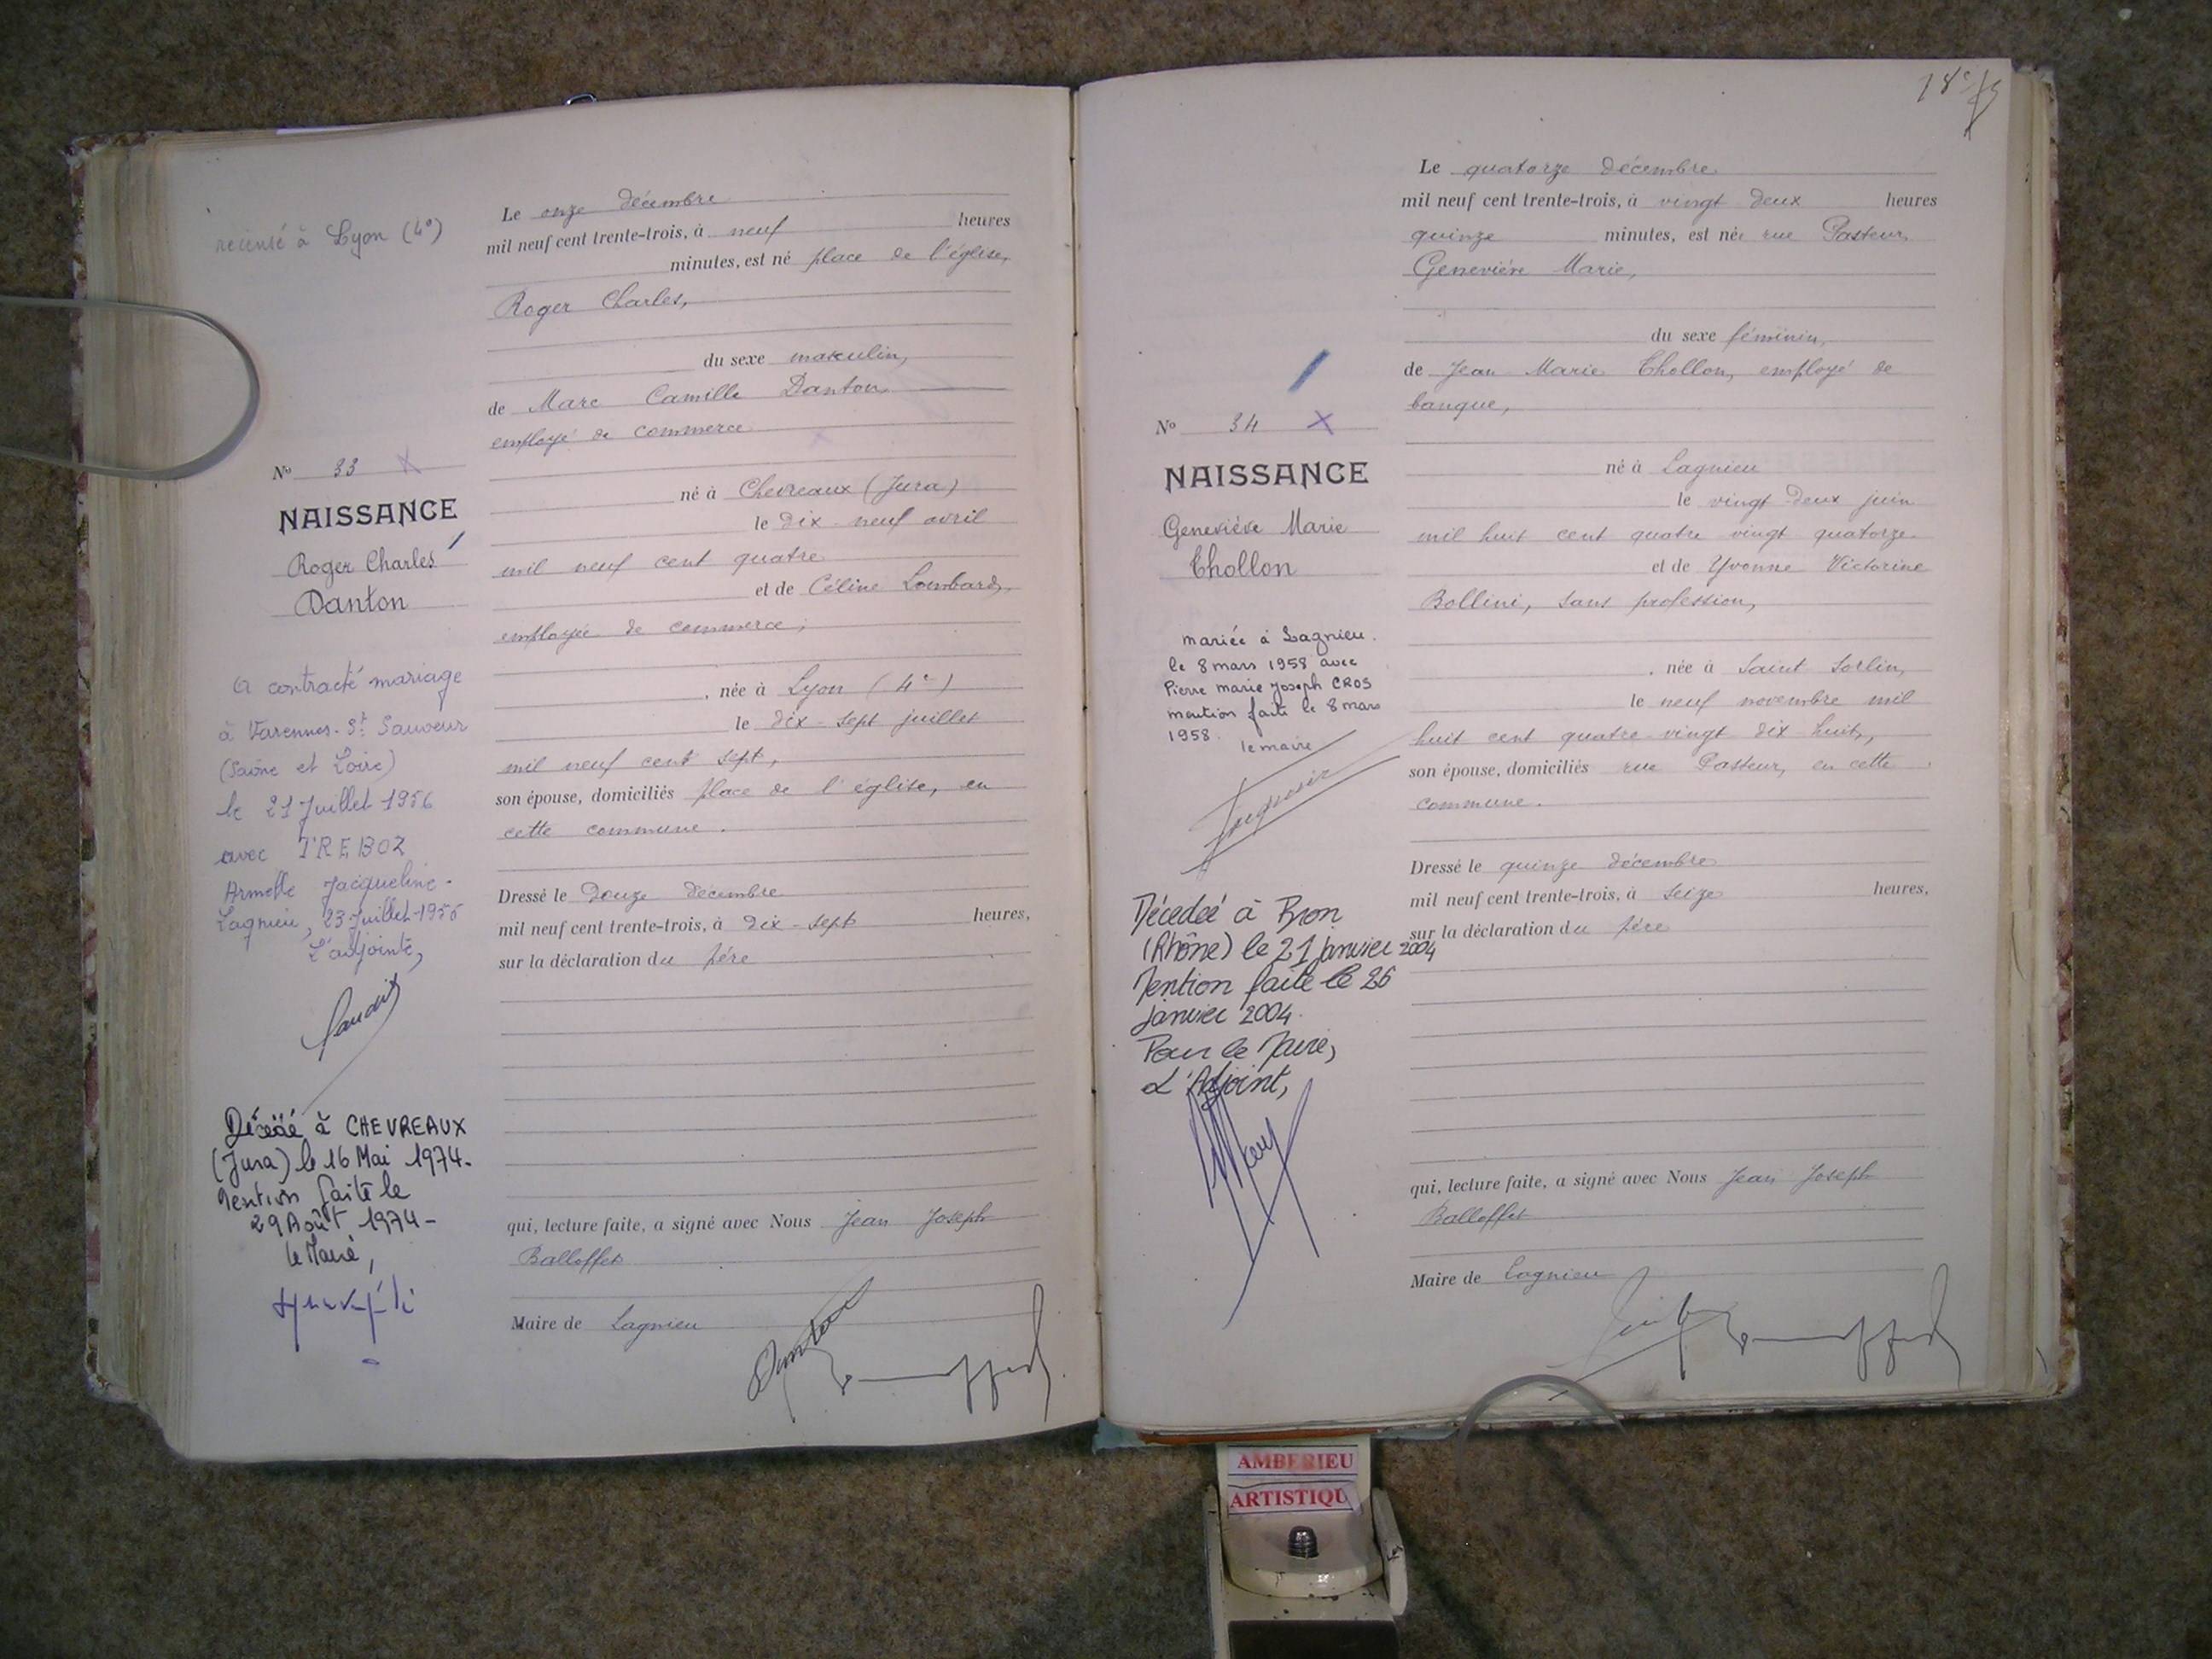 recensé à Lyon (4e)
Nº 33 X
NAISSANCE
Roger Charles
Danton
A contracté mariage
à Varennes-St Sauveur
(Saône et Loire)
le 21 Juillet 1956
avec TREBOZ
Armelle Jacqueline-
Lagnieu, 23 Juillet 1956
L'adjointe,
Décédé à CHEVREAUX
(Jura) le 16 Mai 1974.
Mention faite le
29 Août 1974-
le Maire,
Le onze décembre
mil neuf cent trente-trois, à neuf heures
minutes, est né place de l'église,
Roger Charles,
du sexe masculin,
de Marc Camille Danton
employé de commerce
né à Chevreaux (Jura)
le dix-neuf avril
mil neuf cent quatre
et de Céline Lombard,
employée de commerce;
, née à Lyon (4e)
le dix-sept juillet
mil neuf cent sept,
son épouse, domiciliés place de l'église, en
cette commune.
Dressé le douze décembre
mil neuf cent trente-trois, à dix-sept heures,
sur la déclaration du père
qui, lecture faite, a signé avec Nous Jean Joseph
Balloffet
Maire de Lagnieu
Danton
18e
Nº 34 X
NAISSANCE
Geneviève Marie
Thollon
mariée à Lagnieu.
le 8 mars 1958 avec
Pierre marie Joseph CROS
mention faite le 8 mars
1958. le maire
Décedeé à Bron
(Rhône) le 21 janvier 2004
Mention faite le 26
janvier 2004.
Pour le Maire,
L'Adjoint,
Le quatorze décembre
mil neuf cent trente-trois, à vingt deux heures
quinze minutes, est née rue Pasteur,
Geneviève Marie,
du sexe féminin,
de Jean Marie Thollon, employé de
banque,
né à Lagnieu
le vingt-deux juin
mil huit cent quatre vingt quatorze.
et de Yvonne Victorine
Bollini, sans profession,
, née à Saint Sorlin,
le neuf novembre mil
huit cent quatre-vingt dix huit,
son épouse, domiciliés rue Pasteur, en cette
commune.
Dressé le quinze décembre
mil neuf cent trente-trois, à seize heures,
sur la déclaration du père
qui, lecture faite, a signé avec Nous Jean Joseph
Balloffet
Maire de Lagnieu
AMBERIEU
ARTISTIQU